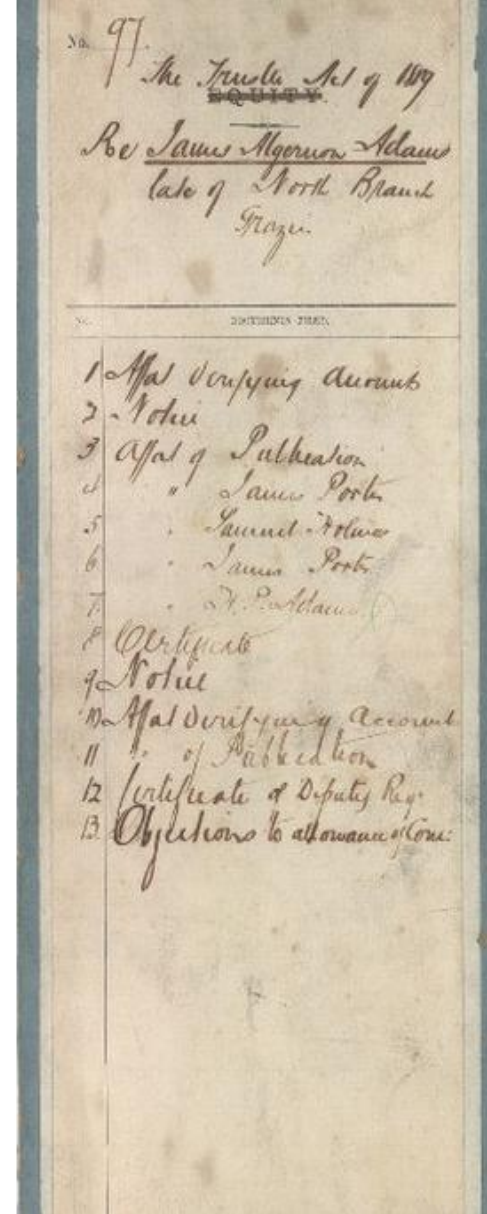 No. 97.
The Trustee Act of 1889
EQUITY.
Re James Algernon Adams
late of North Branch
No. DOCUMENTS FILED.
1 Affat Verifying Accounts
2 Notice
3 Affat of Publication
4 " James Porter
5 " Samuel Holmes
6 " James Porter
7 " H. P. Adams
8 Certificate
9 Notice
10 Affat Verifying Account
11 " of Publication
12 Certificate of Deputy Reg:
13 Objections to allowance of Com: